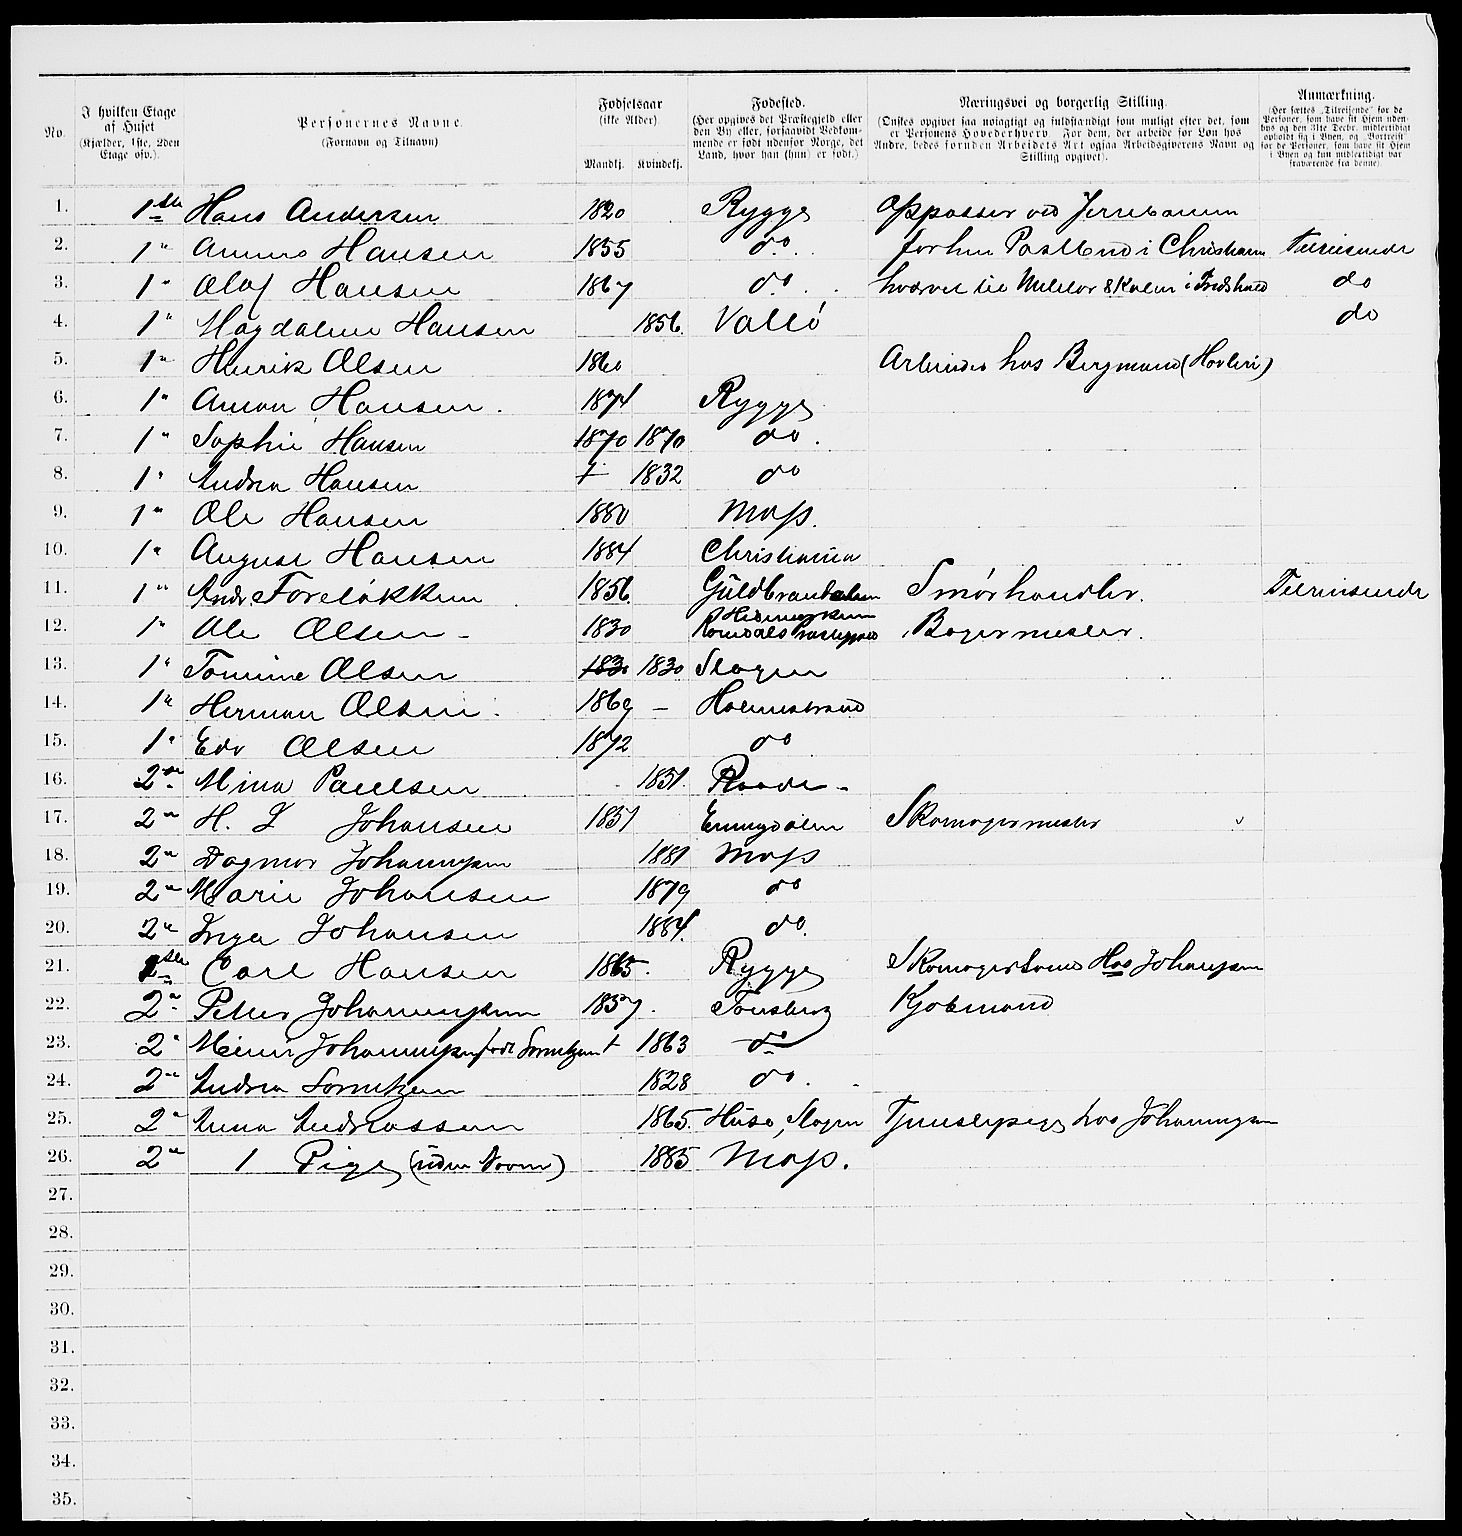 No. | I hvilken Etage af Huset (Kjælder, 1ste, 2den Etage osv.). | Personernes Navne. (Fornavn og Tilnavn) | Fødselsaar (ikke Alder). Mandkj. | Kvindekj. | Fødested. (Her opgives det Præstegjeld eller den By eller, forsaavidt Vedkommende er født udenfor Norge, det Land, hvor han (hun) er født.) | Næringsvei og borgerlig Stilling. (Ønskes opgivet saa nøiagtigt og fuldstændigt som muligt efter det, som er Personens Hovederhverv. For dem, der arbeide for Løn hos Andre, bedes foruden Arbeidets Art ogsaa Arbeidsgiverens Navn og Stilling opgivet). | Anmærkning. (Her sættes „Tilreisende" for de Personer, som have sit Hjem udenbys og den 31te Decbr. midlertidigt opholdt sig i Byen, og „Bortreist" for de Personer, som have sit Hjem i Byen og kun midlertidigt var fraværende fra denne).
1. 1ste Hans Andersen 1820 Rygge Oppasser ved Jernbanen
2. 1" Hansen 1855 do. forhen Postbud i Christiania Tilreisende
3. 1" Olaf Hansen 1867 do. til Militær Skolen i Fredshald do
4. 1" Magdalene Hansen 1856. Vallö do
5. 1" Henrik Olsen 1860 Arbeider hos Bergmand (Høvleri)
6. 1" Anton Hansen. 1874 Rygge
7. 1" Sophie Hansen 1870 1870 do.
8. 1" Andrea Hansen 1832 do
9. 1" Ole Hansen 1880 Moss.
10. 1" August Hansen 1884 Christiania
11. 1" Andr Foreløkken 1856. Guldbrandsdalen Smørhandler. Tilreisende
12. 1" Ole Olsen - 1830 Hedemarken Romdals Præstegjeld Bagermester.
13. 1" Tomine Olsen 1830 1830 Slagen
14. 1" Herman Olsen. 1869 - Holmestrand
15. 1" Edv Olsen 1872 do
16. 2den Mina Paulsen 1851. Raade -
17. 2" H. L Johansen 1851 Enningdalen Skomagermester
18. 2" Dagmar Johannesen 1881 Moss
19. 2" Marie Johansen 1879 do
20. 2" Inga Johansen 1884. do.
21. 1ste Carl Hansen 1865. Rygge Skomagersvend Hos Johansen
22. 2" Peter Johannessen 1857. Tønsberg Kjøbmand
23. 2" Johannessen født Sørensen 1863 do
24. 2" Andrea Sørensen 1828 do.
25. 2" Anna Andreassen 1865. Husø, Slagen Tjenestepige hos Johannessen
26. 2" 1 Pige (uden Navn) 1885 Moss.
27.
28.
29.
30.
31.
32.
33.
34.
35.